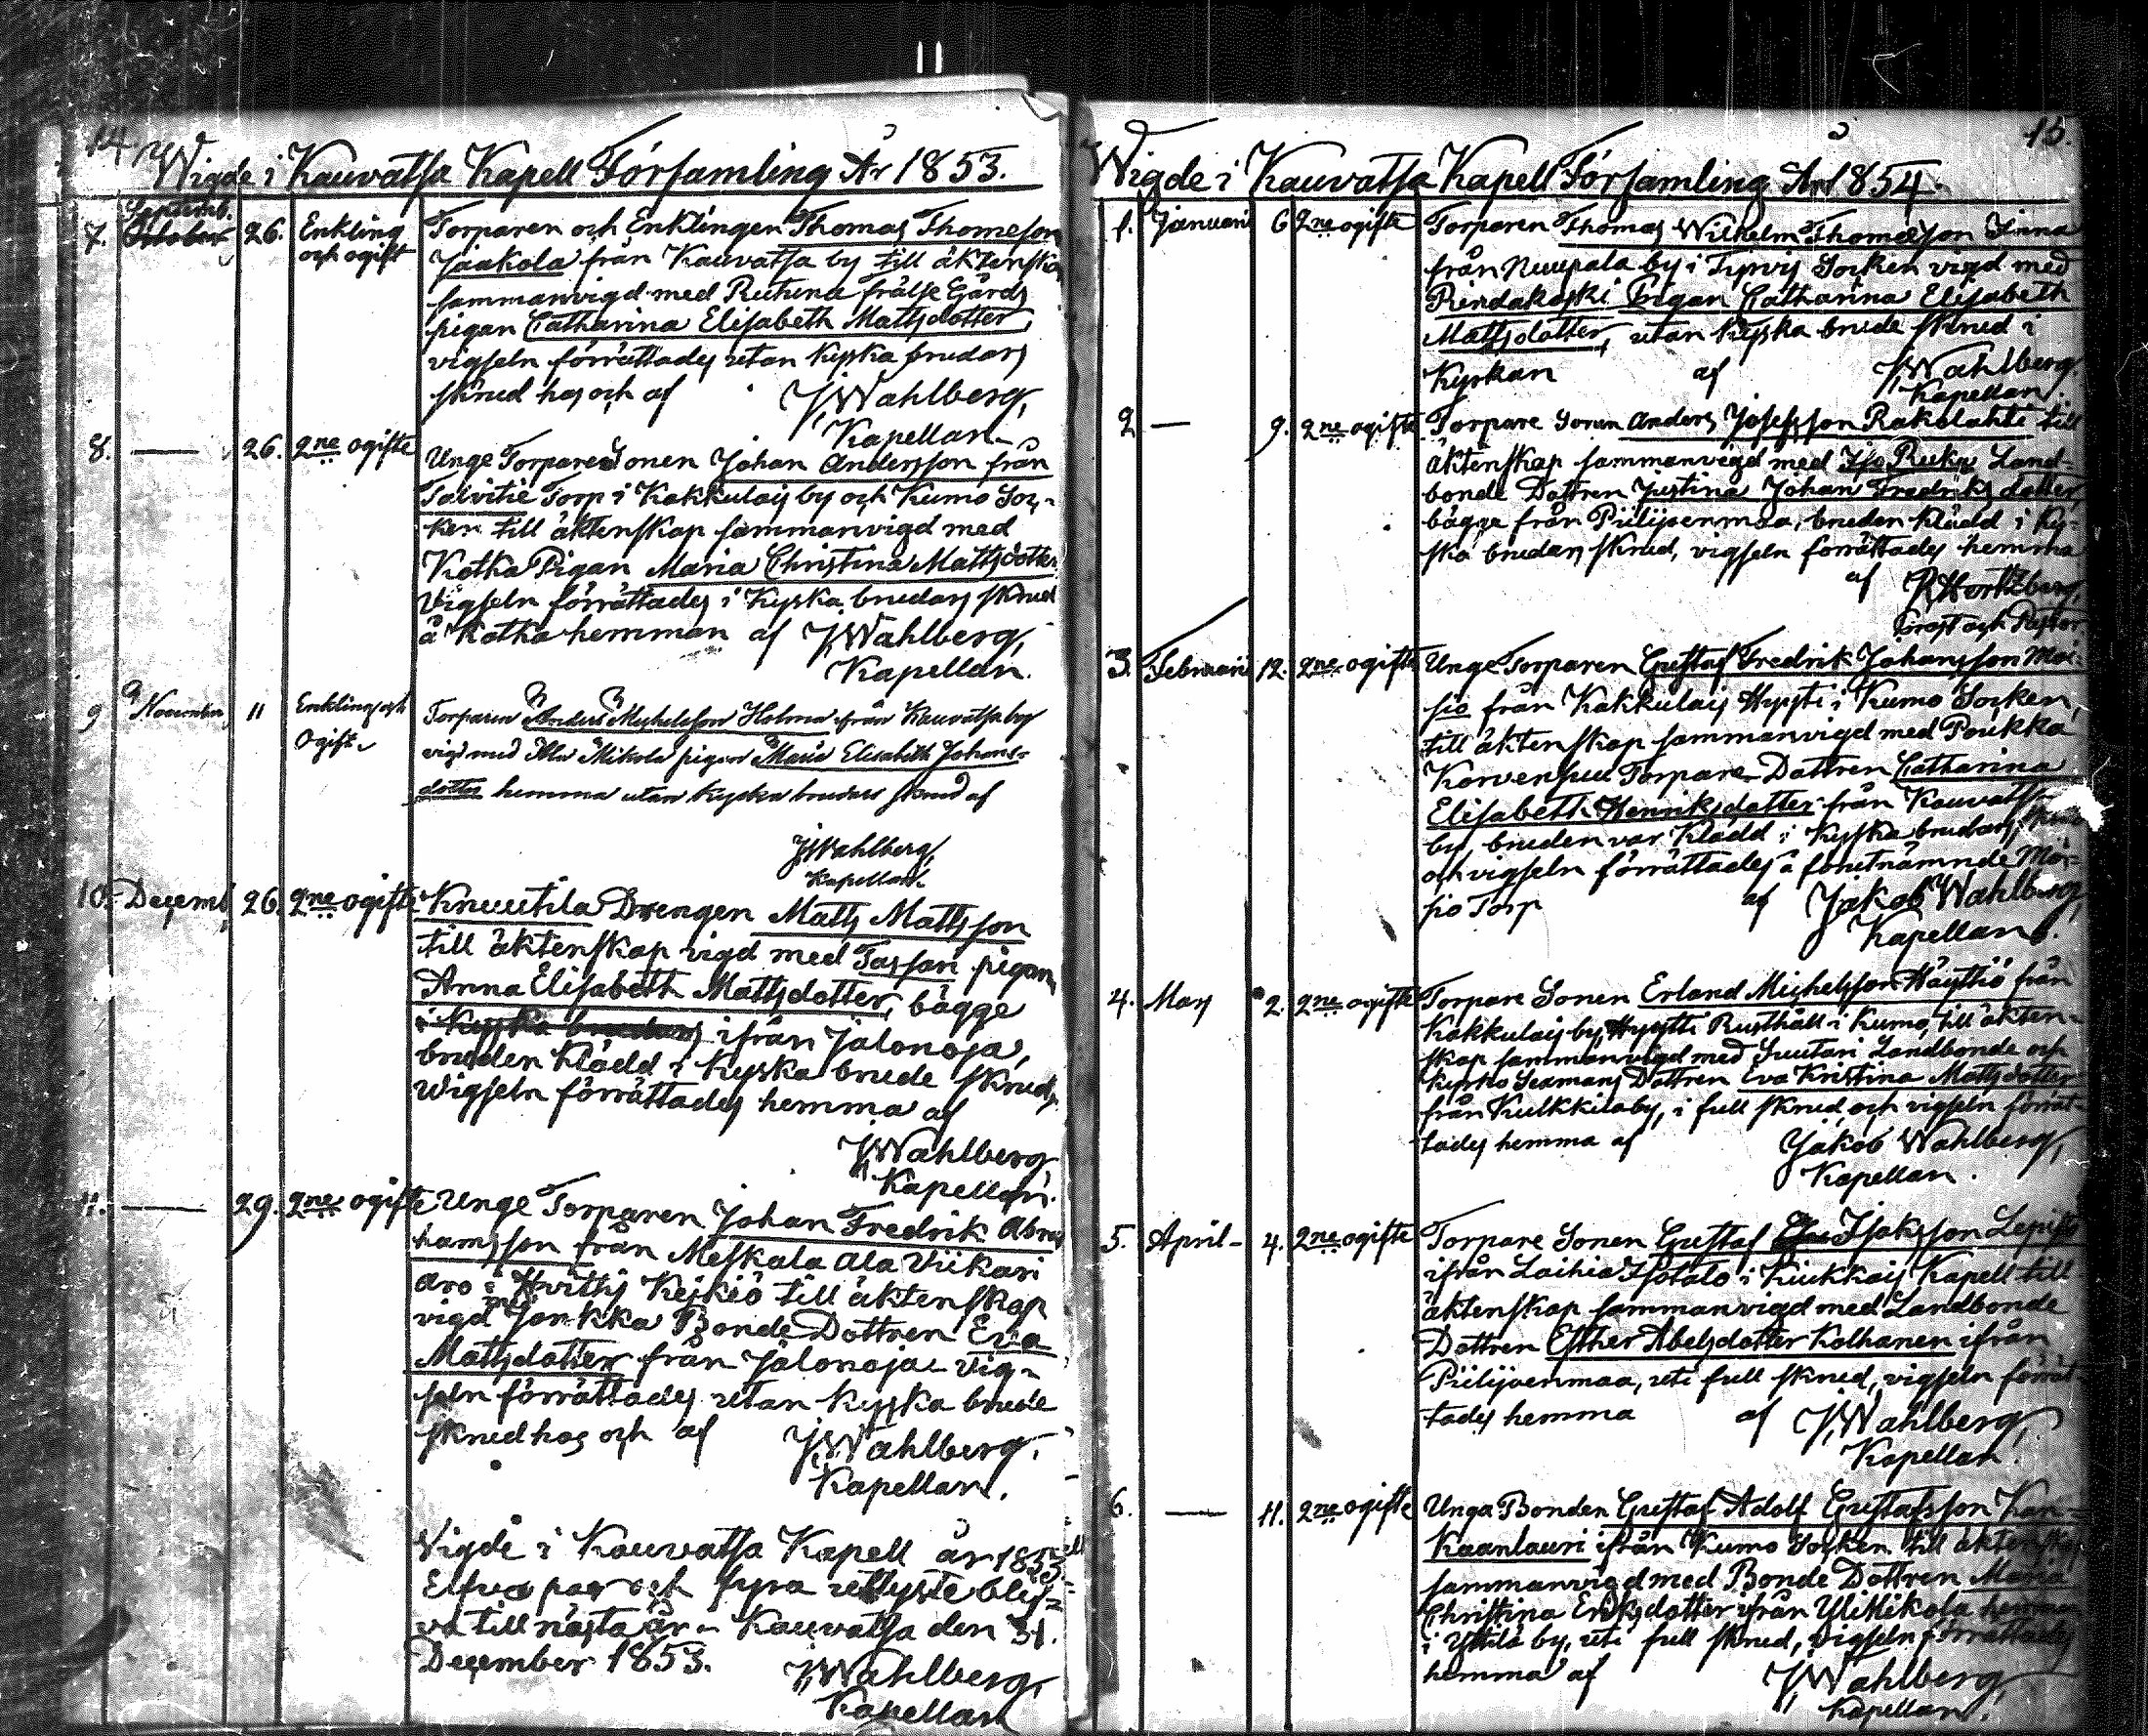 14
Wigde i Kauvatsa Kapell Församling År 1853.
7. Septemb. October 26. Enkling och ogift
Torparen och Enklingen Thomas Thomeson
Jaakola från Kauvatsa by till äktenska
sammanvigd med frälse Gårds
pigan Catharina Elisabeth Mattsdotter,
vigseln förrättades utan kyska brudars
skrud hos och af J Wahlberg,
Kapellan
8. — 26. 2ne ogifte
Unge Torpare Sonen Johan Andersson från
Talvitie Torp i Kakkulais by och Kumo Soc-
ken till äktenskap sammanvigd med
Kotka Pigan Maria Christina Mattsdotter
Vigseln förrättades i Kyska brudars skrud
å Kotka hemman af J Wahlberg,
Kapellan.
9 November 11 Enkling och Ogift
Torparen Anders Michelsson Holma från Kauvatsa by
vigd med Mikola pigan Maria Elisabeth Johans-
dotter hemma utan kyska brudars skrud af
J Wahlberg,
Kapellan.
10. Decemb, 26. 2ne ogifte
Knuutila Drengen Matts Mattsson
till äktenskap vigd med Tassari pigan
Anna Elisabeth Mattsdotter, bägge
i Kyska brudars ifrån Jalonoja,
bruden klädd i kyska brude skrud,
Wigseln förrättades hemma af
J Wahlberg,
Kapellan.
11. — 29. 2ne ogifte
Unge Torparen Johan Fredrik Abra
hamsson från Meskala Ala Viikari
aro i Hvittis Keikiö till äktenskap
vigd med Jonkka Bonde Dottren Eva
Mattsdotter från Jalonoja vig-
seln förrättades utan kyska brude
skrud hos och af J Wahlberg,
Kapellan.
Vigde i Kauvatsa Kapell år 1853.
Elfva par och fyra uttlyste blef-
vo till nästa år. Kauvatsa den 31.
December 1853. J Wahlberg,
Kapellan
15.
Wigde i Kauvatsa Kapell Församling År 1854.
1. Januari 6 2ne ogifte
Torparen Thomas Wilhelm Thomesson
från Nuupala by i Tyrvis Socken vigd med
Rindakoski Pigan Catharina Elisabeth
Mattsdotter, utan kyska brude skrud i
Kyrkan af J Wahlberg,
Kapellan.
2 — 9. 2ne ogifte
Torpare Sonen Anders Josefsson Rakolahti till
äktenskap sammanvigd med Iso Land-
bonde Dottren Justina Johan Fredriks dotter
bägge från Piilijoenmaa, bruden klädd i Ky-
ska brudars skrud, vigseln förrättades hemma
af R Hertzberg,
Prost och Pastor
3. Februari 12. 2ne ogifte
Unge Torparen Gustaf Fredrik Johansson Moi-
sio från Kakkulais Hyysti i Kumo Socken,
till äktenskap sammanvigd med Poukka
Korvensuu Torpare Dottren Catharina
Elisabeth Henriksdotter från Kauvatsa
by, bruden var klädd i kyska brudars skrud
och vigseln förrättades å förutnämnde Moi-
sio Torp af Jakob Wahlberg,
Kapellan.
4. May 2. 2ne ogifte
Torpare Sonen Erland Michelsson Häyhtiö från
Kakkulais by, Hyysti Rusthåll i Kumo, till äkten-
skap sammanvigd med Suutari Landbonde och
kyrko Sexmans Dottren Eva Kristina Mattsdotter
från Kulkkila by, i full skrud och vigseln förrät-
tades hemma af Jakob Wahlberg,
Kapellan.
5. April — 4. 2ne ogifte
Torpare Sonen Gustaf Isaksson Lepistö
ifrån Laihia Isotalo i Kiukkais Kapell till
äktenskap sammanvigd med Landbonde
Dottren Esther Abelsdotter Kolhanen ifrån
Piilijoenmaa, uti full skrud, vigseln förrät-
tades hemma af J Wahlberg,
Kapellan.
6. — 11. 2ne ogifte
Unga Bonden Gustaf Adolf Gustafsson
Kaanlauri ifrån Kumo Socken till äktenskap
sammanvigd med Bonde Dottren Maria
Christina Eriksdotter ifrån Yli Mikola hemman
i Yttilä by, uti full skrud, vigseln förrättades
hemma af J Wahlberg,
Kapellan.